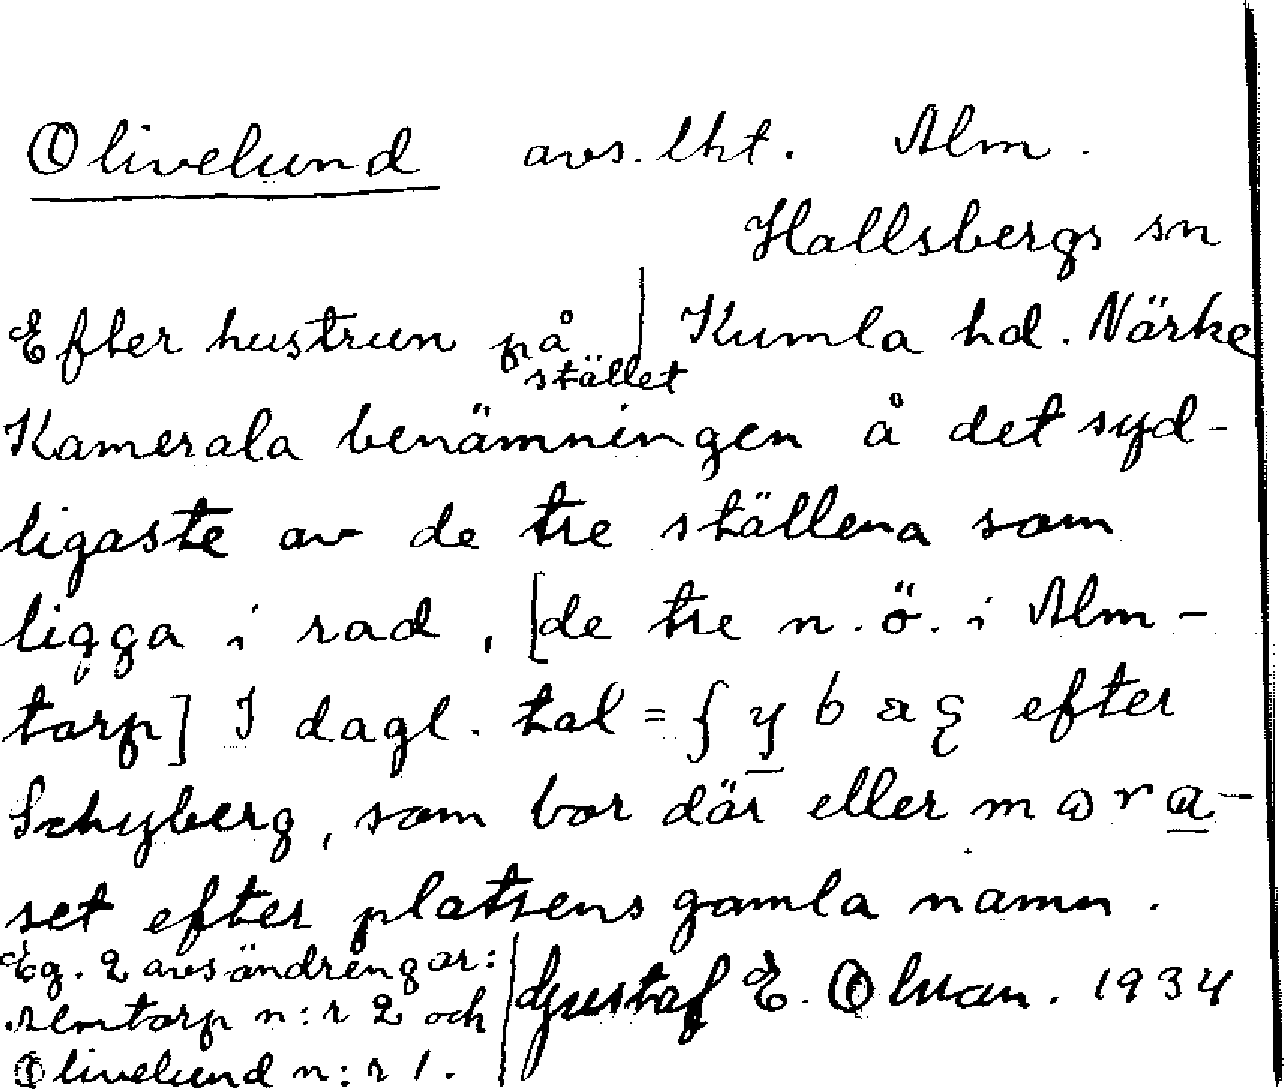 Olivelund avs. lht. Alm.
Hallsbergs sn
Efter hustrun på stället | Kumla hd. Närke
Kamerala benämningen å det syd-
ligaste av de tre ställena som
ligga i rad, [de tre n. ö. i Alm-
torp] I dagl. tal = ʃ y b a efter
Schyberg, som bor där eller m ɷ r a-
set efter platsens gamla namn.
Eg. 2 avsöndringar:
Almtorp n:r 2 och
Olivelund n:r 1.
Gustaf E. Olsson. 1934